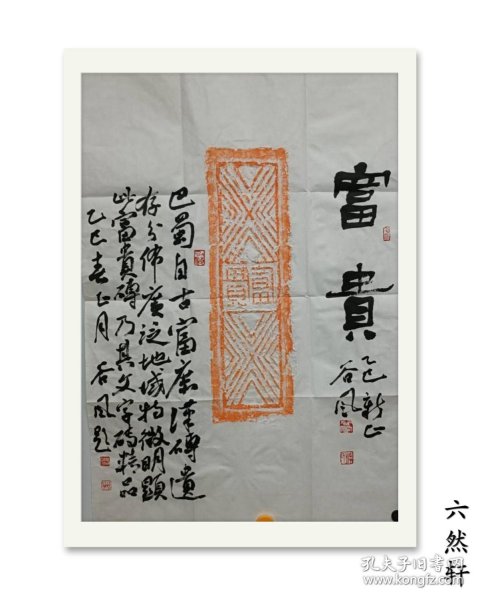 富貴
乙巳新正
谷風
富貴
巴蜀自古富庶漢磚遺
存分佈廣泛地域物徵明顯
此富貴磚乃其文字磚精品
乙巳春正月谷風題
六然轩
孔夫子旧书网
www.kongfz.com